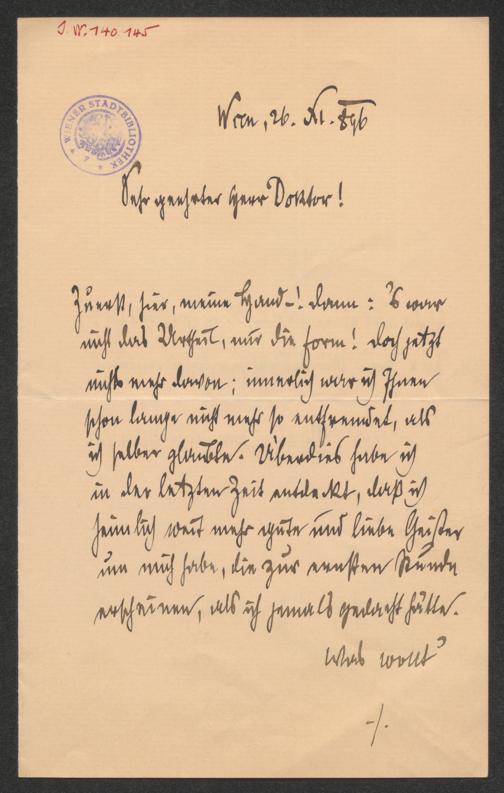 J. N. 140.145
WIENER STADTBIBLIOTHEK
Wien, 26. XI. 896
Sehr geehrter Herr Doktor!
Zuerst, hier, meine Hand–! dann: 's war
nicht das Urtheil, nur die Form! doch jetzt
nichts mehr davon; innerlich war ich Ihnen
schon lange nicht mehr so entfremdet, als
ich selber glaubte. Überdies habe ich
in der letzten Zeit entdeckt, daß ich
heimlich weit mehr gute und liebe Geister
um mich habe, die zur ernsten Stunde
erscheinen, als ich jemals gedacht hätte.
Was wollt'
-/.